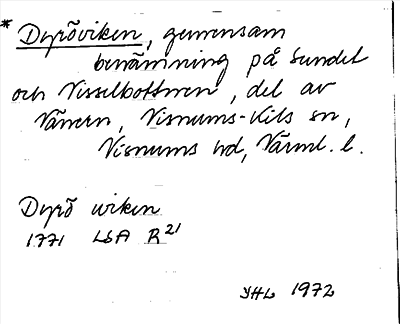 * Dyröviken, gemensam
benämning på Sundet
och Visselbottnen, del av
Vänern, Visnums-Kils sn,
Visnums hd, Värml. l.
Dyrö wiken
1771 LSA R21
YHL 1972